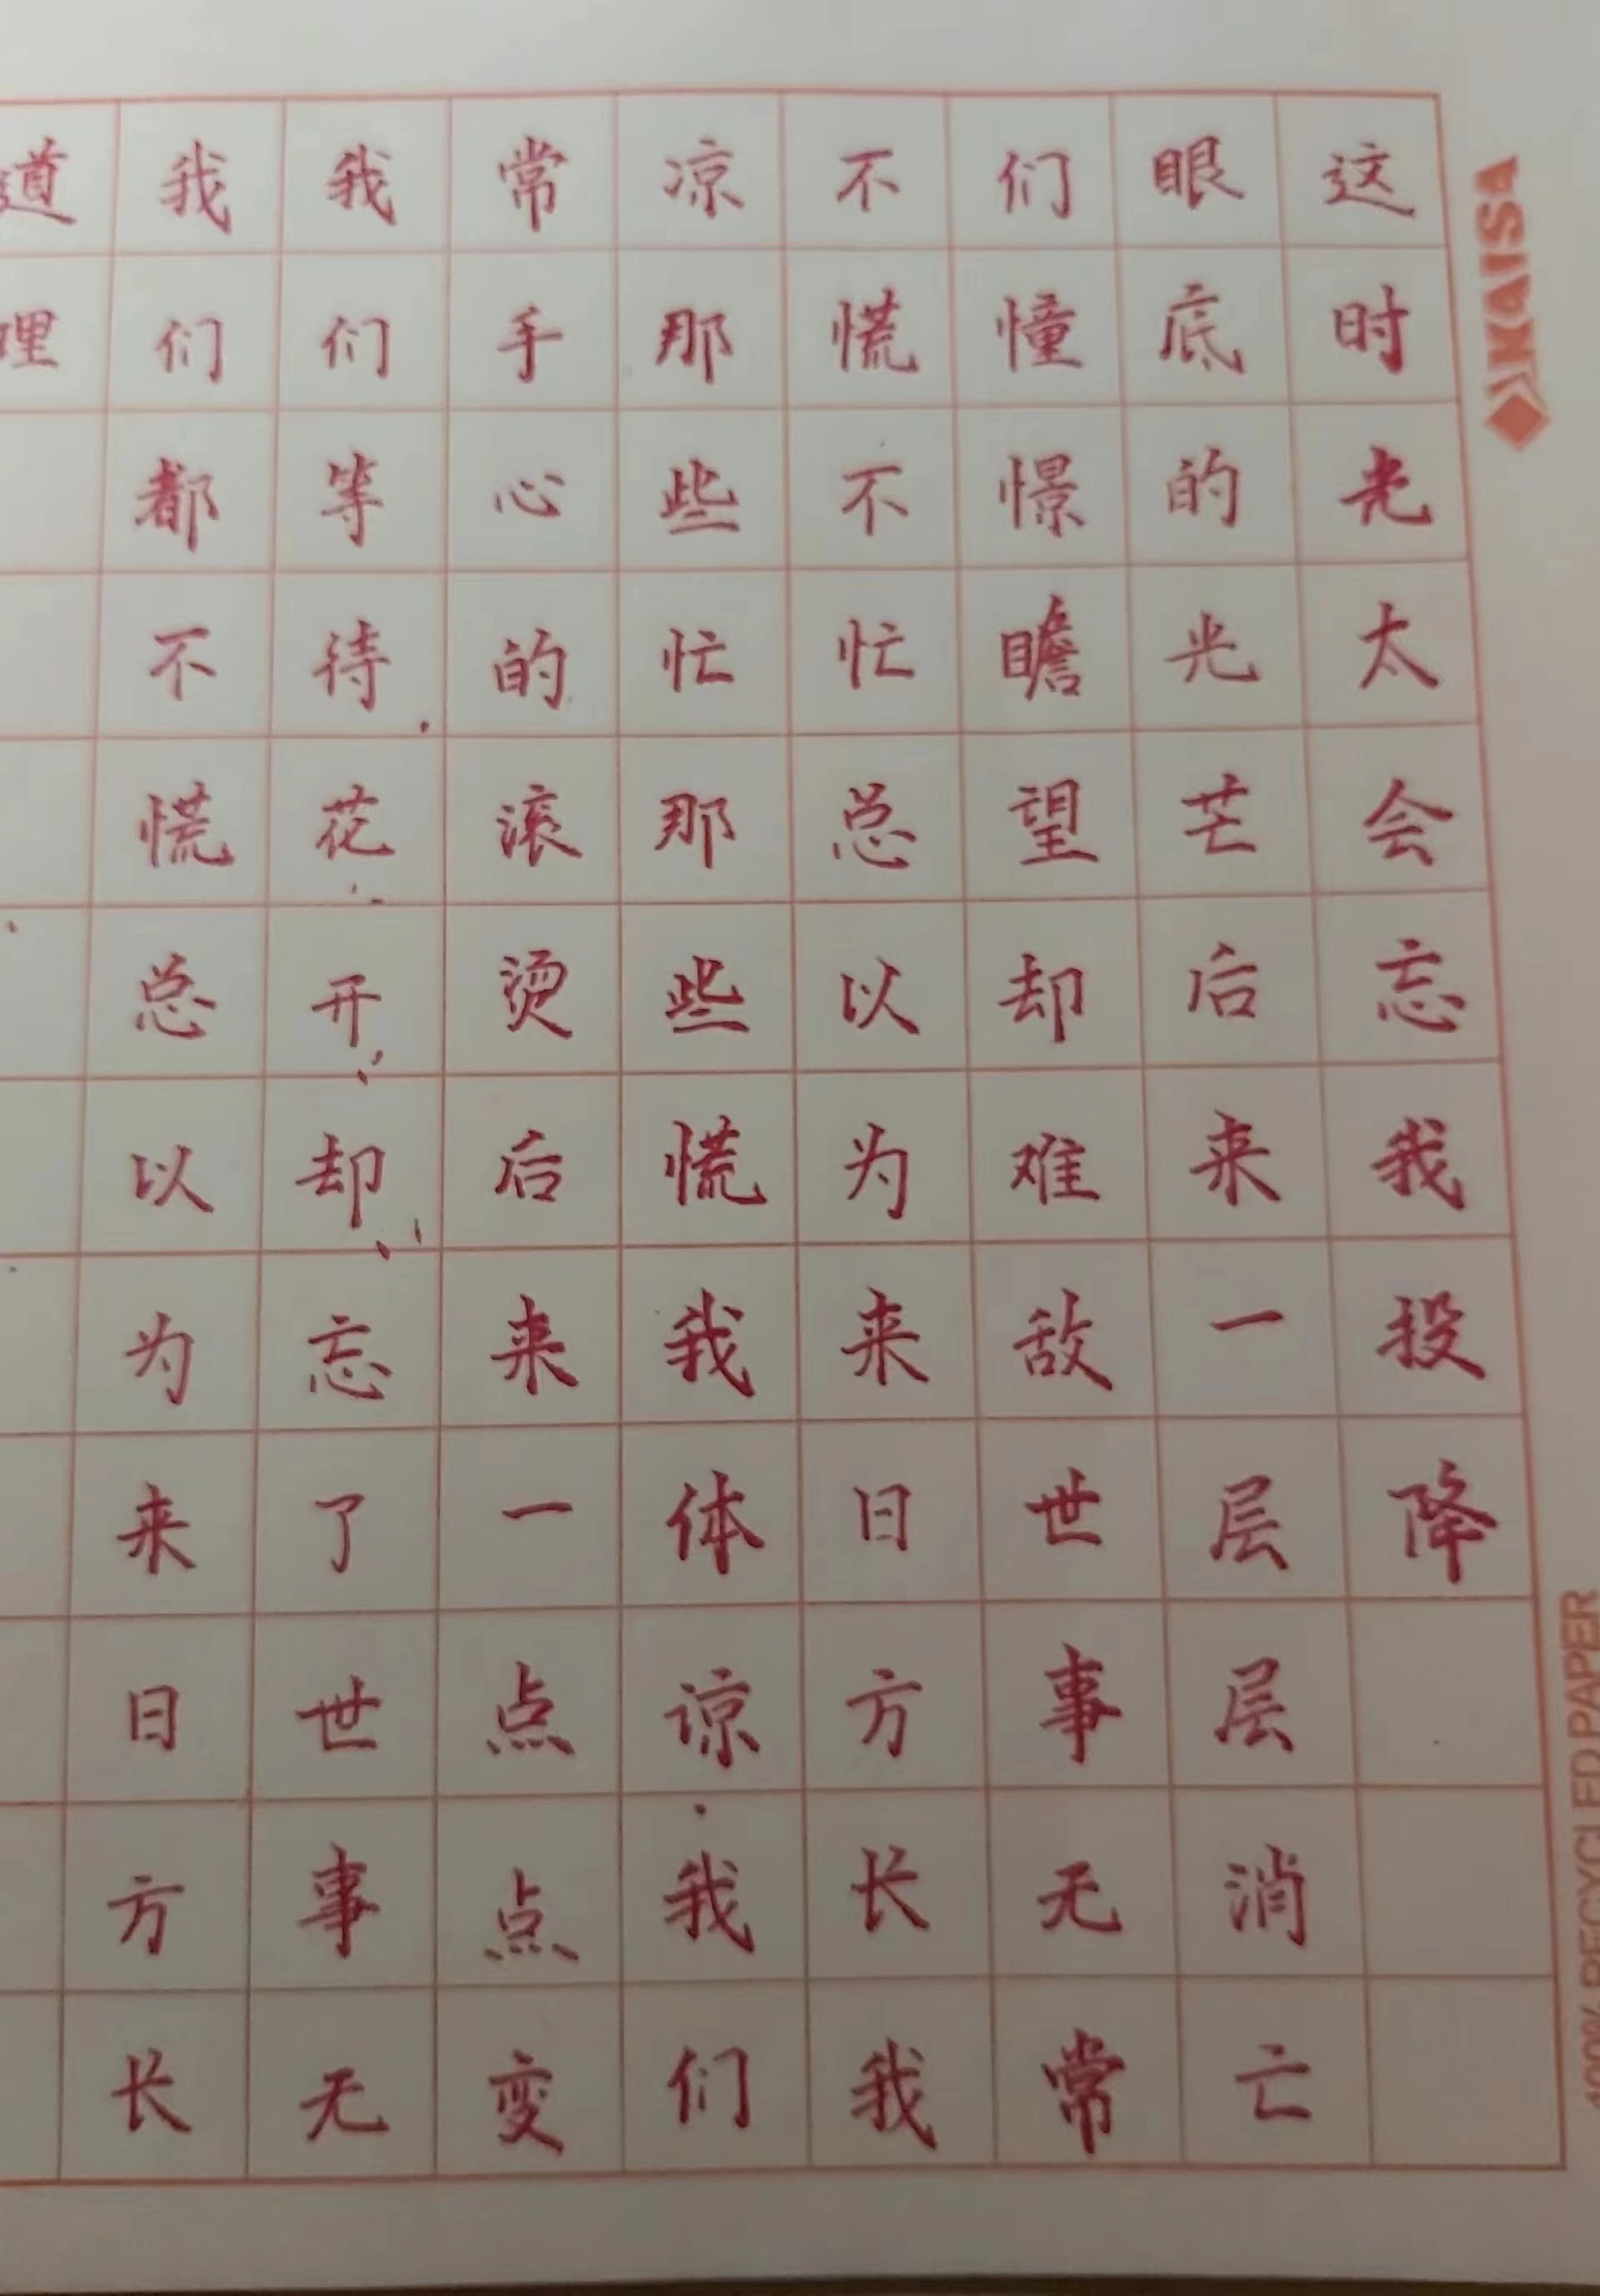 这时光太会忘我投降
眼底的光芒后来一层层消亡
们憧憬瞻望却难敌世事无常
不慌不忙总以为来日方长我
凉那些忙那些慌我体谅我们
常手心的滚烫后来一点点变
我们等待花开却忘了世事无
我们都不慌总以为来日方长
道理
KAISA
RECYCLED PAPER